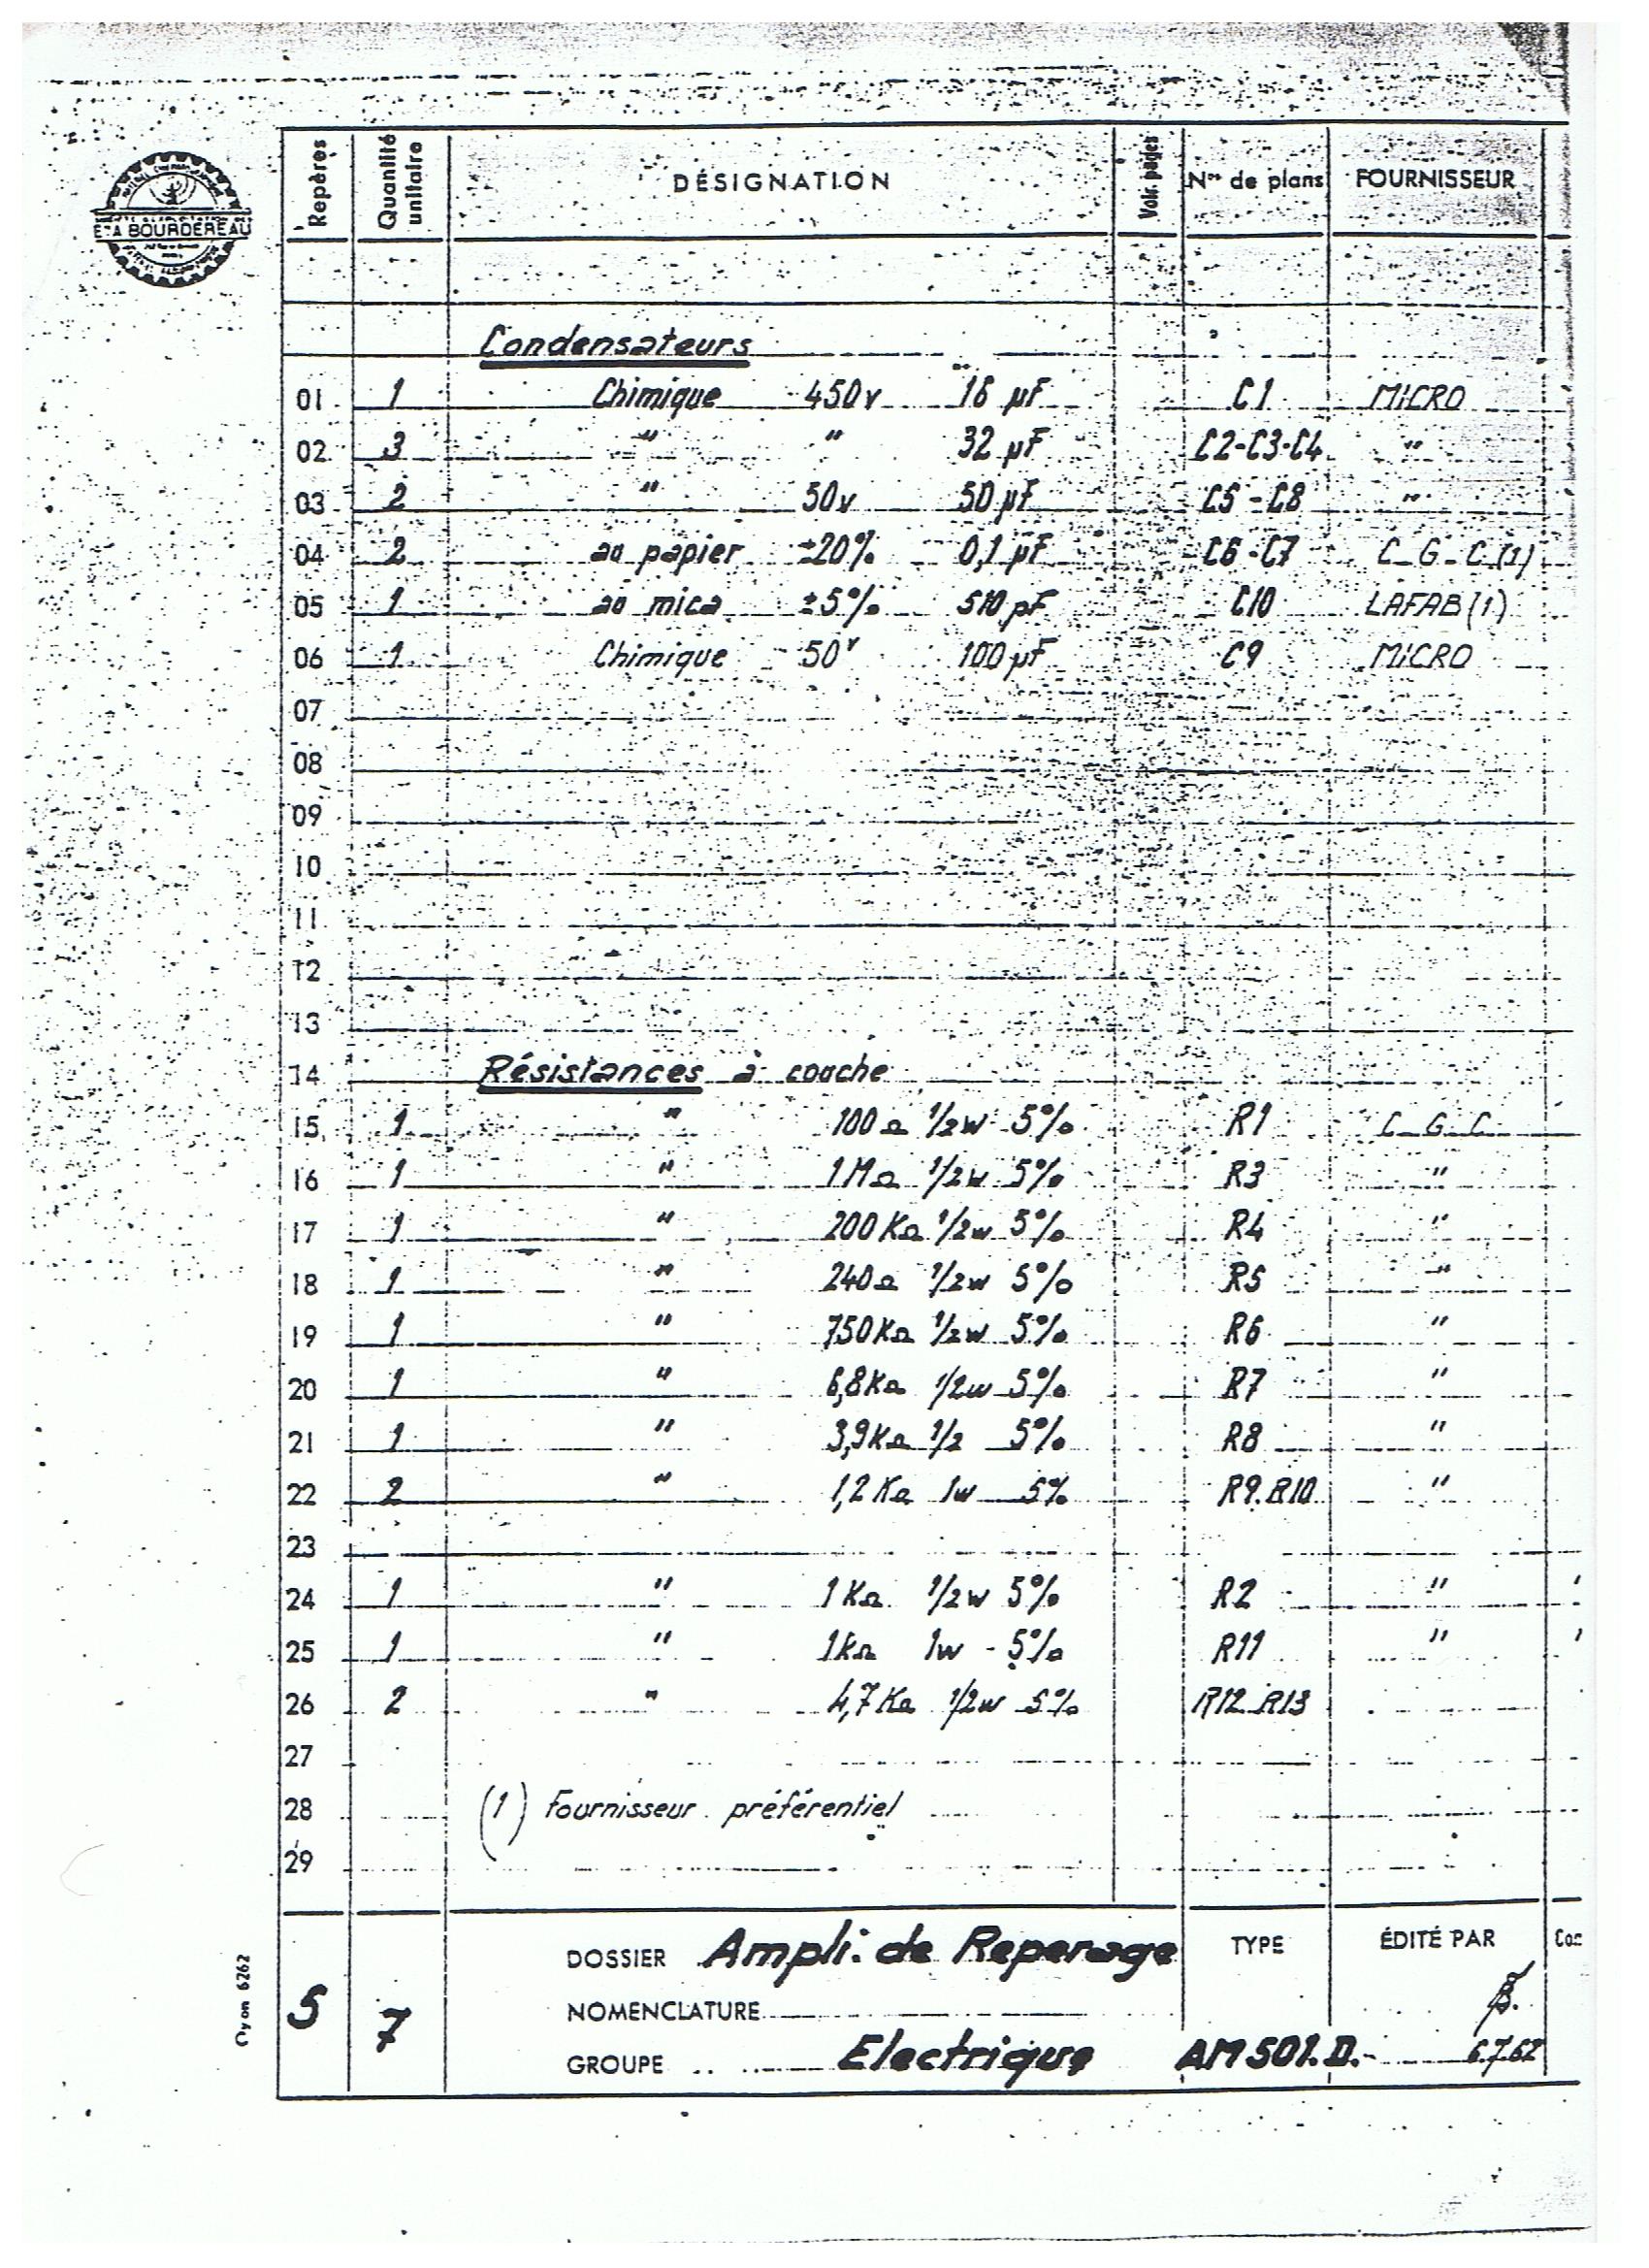 Repères Quantité unitaire DÉSIGNATION Voir. pages Nos de plans FOURNISSEUR
Ets A BOURDEREAU
Condensateurs
01 1 Chimique 450v 16 µF C1 MICRO
02 3 " " 32 µF C2-C3-C4 "
03 2 " 50v 50 µF C5-C8 "
04 2 au papier ±20% 0,1 µF C6-C7 C_G_C (1)
05 1 au mica ±5% 510 pF C10 LAFAB (1)
06 1 Chimique 50v 100 µF C9 MICRO
07
08
09
10
11
12
13
14 Résistances à couche
15 1 " 100Ω 1/2w 5% R1 C_G_C
16 1 " 1MΩ 1/2w 5% R3 "
17 1 " 200KΩ 1/2w 5% R4 "
18 1 " 240Ω 1/2w 5% R5 "
19 1 " 750KΩ 1/2w 5% R6 "
20 1 " 6,8KΩ 1/2w 5% R7 "
21 1 " 3,9KΩ 1/2 5% R8 "
22 2 " 1,2KΩ 1w 5% R9.R10 "
23
24 1 " 1KΩ 1/2w 5% R2 "
25 1 " 1KΩ 1w - 5% R11 "
26 2 " 4,7KΩ 1/2w 5% R12.R13
27
28 (1) Fournisseur préférentiel
29
DOSSIER Ampli. de Reperage TYPE ÉDITÉ PAR
5 7 NOMENCLATURE
GROUPE Electrique AM501.D. 6.7.62
6262